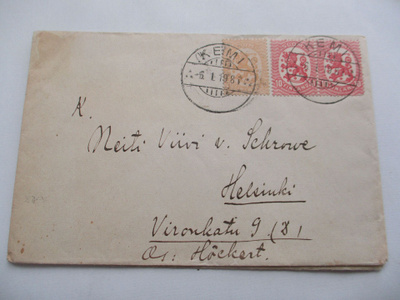 KEMI
KEMI
K.
Neiti Viivi v. Schrowe
Helsinki
Vironkatu 9 (D)
Os: Höckert.